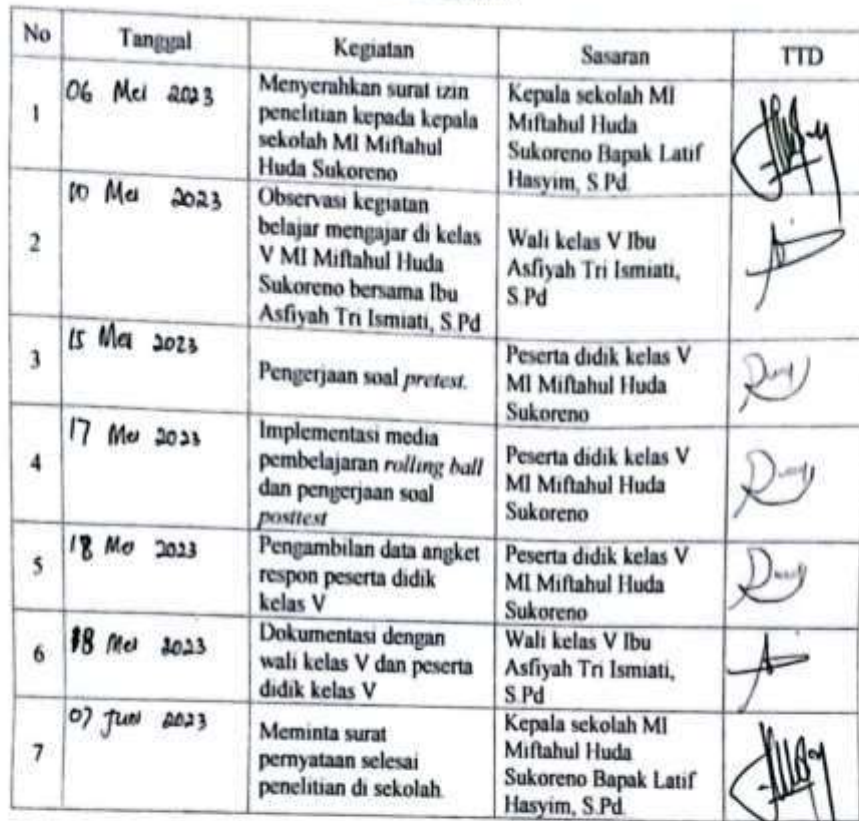 No Tanggal Kegiatan Sasaran TTD
1 06 Mei 2023
Menyerahkan surat izin
penelitian kepada kepala
sekolah MI Miftahul
Huda Sukoreno
Kepala sekolah MI
Miftahul Huda
Sukoreno Bapak Latif
Hasyim, S.Pd.
2 10 Mei 2023
Observasi kegiatan
belajar mengajar di kelas
V MI Miftahul Huda
Sukoreno bersama Ibu
Asfiyah Tri Ismiati, S.Pd
Wali kelas V Ibu
Asfiyah Tri Ismiati,
S.Pd
3 15 Mei 2023
Pengerjaan soal pretest.
Peserta didik kelas V
MI Miftahul Huda
Sukoreno
4 17 Mei 2023
Implementasi media
pembelajaran rolling ball
dan pengerjaan soal
posttest
Peserta didik kelas V
MI Miftahul Huda
Sukoreno
5 18 Mei 2023
Pengambilan data angket
respon peserta didik
kelas V
Peserta didik kelas V
MI Miftahul Huda
Sukoreno
6 18 Mei 2023
Dokumentasi dengan
wali kelas V dan peserta
didik kelas V
Wali kelas V Ibu
Asfiyah Tri Ismiati,
S.Pd
7 07 Juni 2023
Meminta surat
pernyataan selesai
penelitian di sekolah.
Kepala sekolah MI
Miftahul Huda
Sukoreno Bapak Latif
Hasyim, S.Pd.